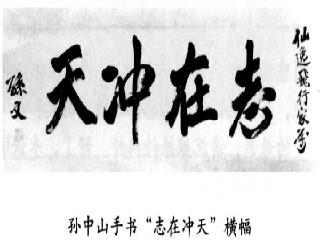 仙逸飛行家属
志在冲天
孫文
孙中山手书“志在冲天”横幅